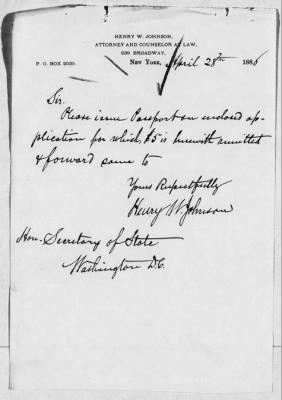 HENRY W. JOHNSON,
ATTORNEY AND COUNSELOR AT LAW,
239 BROADWAY,
P. O. BOX 2039.
New York, April 28th 1886
Sir.
Please issue Passport on enclosed ap-
plication for which, $5 is herewith remitted
& forward same to
Yours Respectfully
Henry W Johnson
Hon. Secretary of State
Washington D.C.